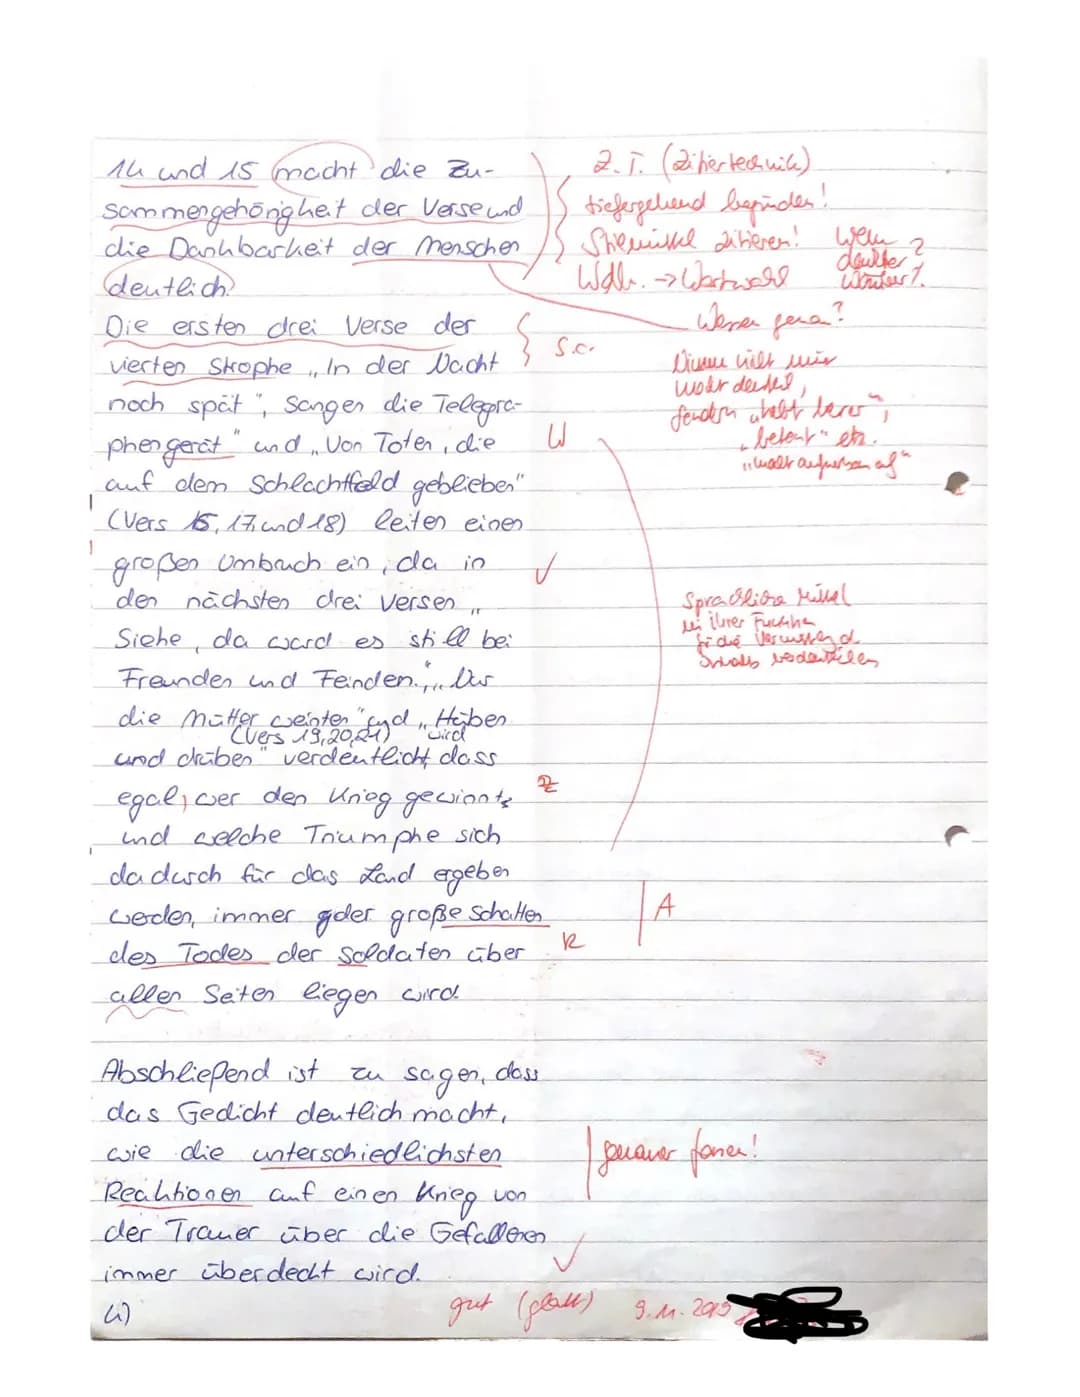 14 und 15 macht die Zu-
sammengehörigkeit der Verse und
die Dankbarkeit der Menschen
deutlich.
Die ersten drei Verse der
vierten Strophe „In der Nacht
noch spät", sangen die Telegra-
phengerät" und „Von Toten, die
auf dem Schlachtfeld geblieben"
(Vers 16, 17 und 18) leiten einen
großen Umbruch ein, da in
den nächsten drei Versen „
Siehe, da ward es still bei
Freunden und Feinden.", „Nur
die Mütter weinten" und „Hüben
(Vers 19, 20, 21) wird
und drüben" verdeutlicht, dass
egal, wer den Krieg gewinnt,
und welche Triumphe sich
dadurch für das Land ergeben
werden, immer der große Schatten
des Todes der Soldaten über
allen Seiten liegen wird.
Abschließend ist zu sagen, dass
das Gedicht deutlich macht,
wie die unterschiedlichsten
Reaktionen auf einen Krieg von
der Trauer über die Gefallenen
immer überdeckt wird.
Z.T. (Zitiertechnik)
tiefergehend begründen!
Stilmittel zitieren!
Wdh. -> Wortwahl
Wessen genau?
s.o.
W
"betont" etc.
Sprachliche Mittel
in ihrer Funktion
für die Vermittlung d.
Inhalts
Z
A
R
genauer fassen!
gut (glatt) 9.11.2019